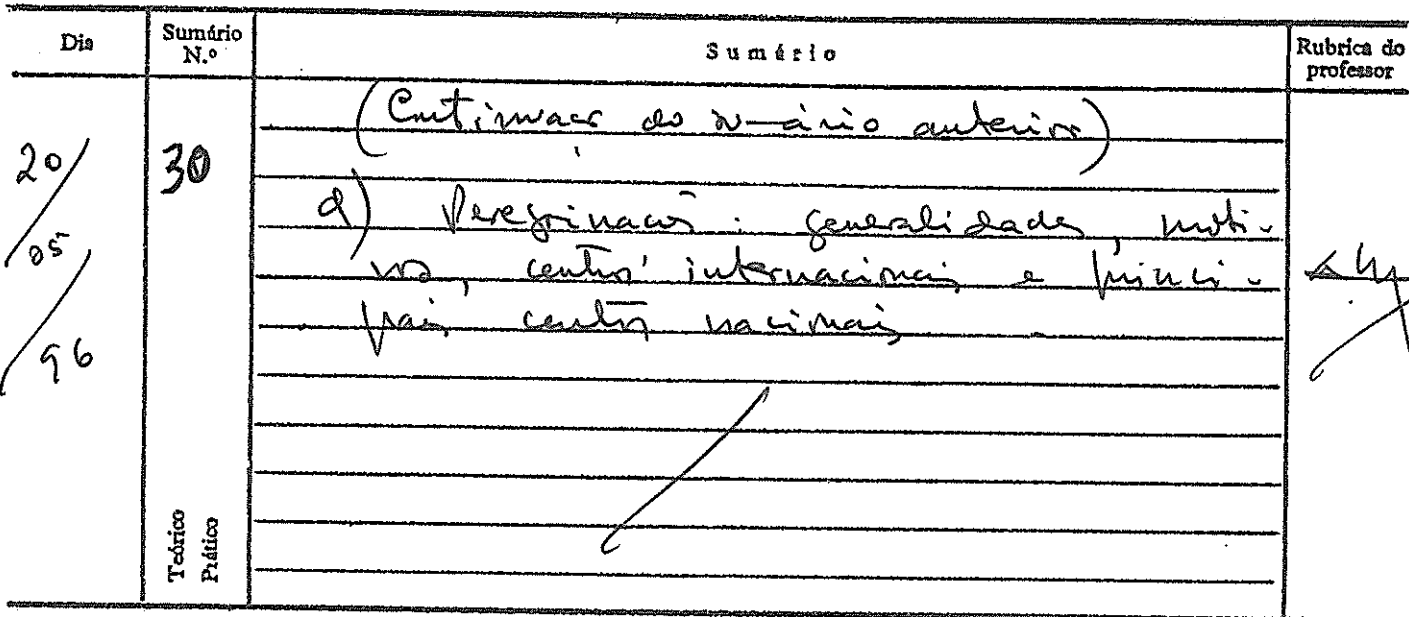 Dia
Sumário N.º
Sumário
Rubrica do professor
20/05/96
30
(Continuação do sumário anterior)
d) Peregrinações: generalidades, moti-
vos, centros internacionais e princi-
pais centros nacionais.
Teórico
Prático